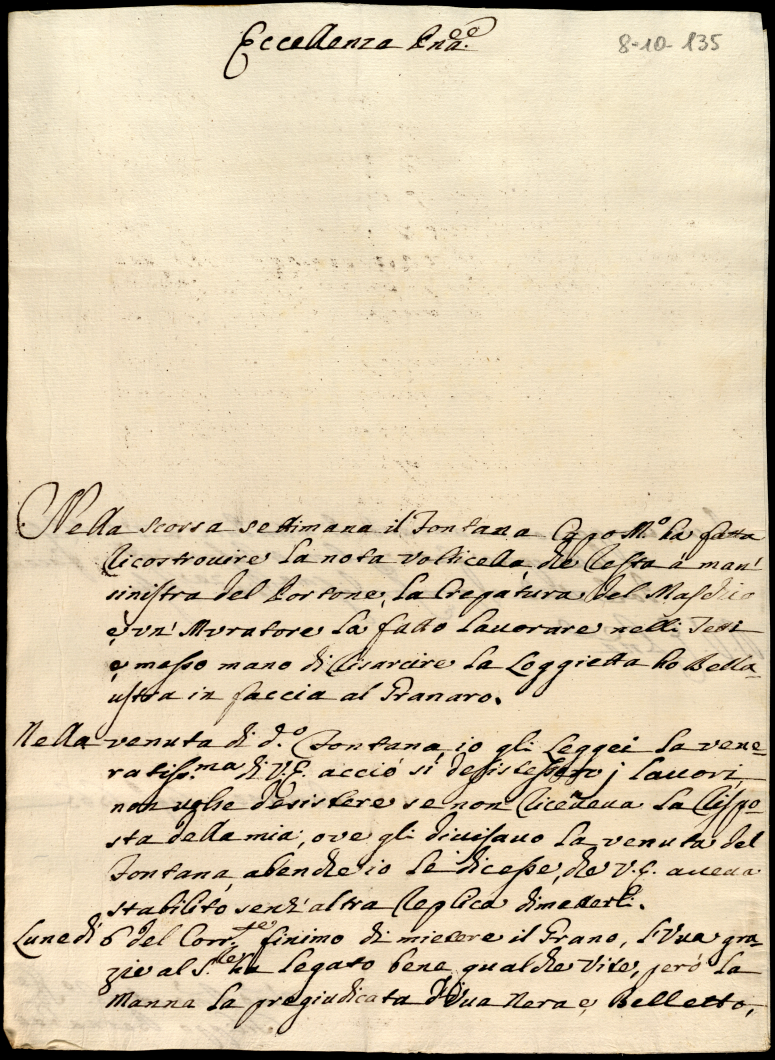 Eccellenza Pna.
8-10-135
Nella scorsa settimana il Fontana Capo M.º ha fatta
ricostrouire la nota volticella, che resta á man'
sinistra del Portone, la Crepatura del Maschio
e vn' Muratore la fatto lauorare nelli Tetti
e messo mano di risarcire la Loggietta ho Bella-
ustra in faccia al Granaro.
Nella venuta di d.º Fontana io gli Leggei la vene-
ratiss.ma di V.E. acció si desistessero j lauori,
non uolse desistere se non riceueua la rispo-
sta della mia, oue gli diuisauo la venuta del
Fontana, abenche io le dicesse, che V.E. aueua
stabilito senz'altra replica dimetterli.
Lunedi 6 del Corr.te finimo di mietere il Grano, l'Vua gra-
zie al S.re ha legato bene qualche Vite, peró la
Manna la pregiudicata Vua Nera e Belletto,